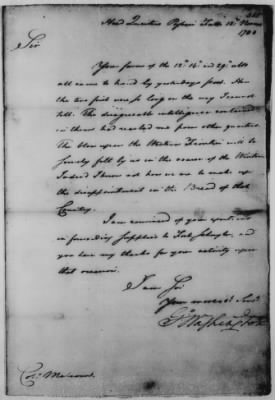 Head Quarters Passaic Falls 12th Novem
1780
Sir
Your favors of the 12th 14th and 29th ulto
all came to hand by yesterdays post. How
the two first were so long on the way I cannot
tell. The disagreeable intelligence contained
in them had reached me from other quarters.
The blow upon the Western Frontier will be
severely felt by us in the course of the Winter.
Indeed I know not how we are to make up
the disappointment in the Bread of that
Country.
I am convinced of your exertions
in forwarding supplies to Fort Schuyler, and
you have my thanks for your activity upon
that occasion.
I am Sir
Your most obt Servt
Go Washington
Colo Malcom